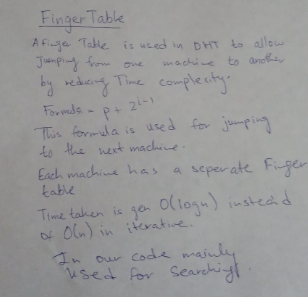 Finger Table
A Finger Table is used in DHT to allow
Jumping from one machine to another
by reducing Time complexity.
Formula - p + 2^i-1
This formula is used for jumping
to the next machine.
Each machine has a seperate Finger
table
Time taken is gen O(logn) instead
of O(n) in iterative.
In our code mainly
used for searching.